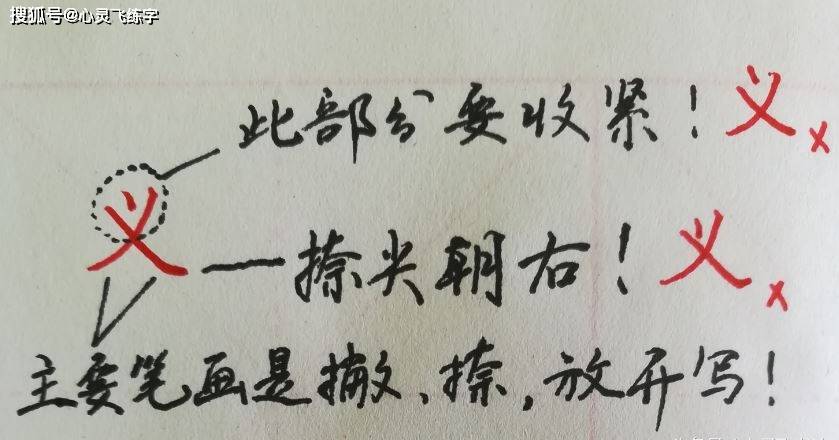 搜狐号@心灵飞练字
此部分要收紧！义x
义
捺尖朝右！义x
主要笔画是撇、捺，放开写！